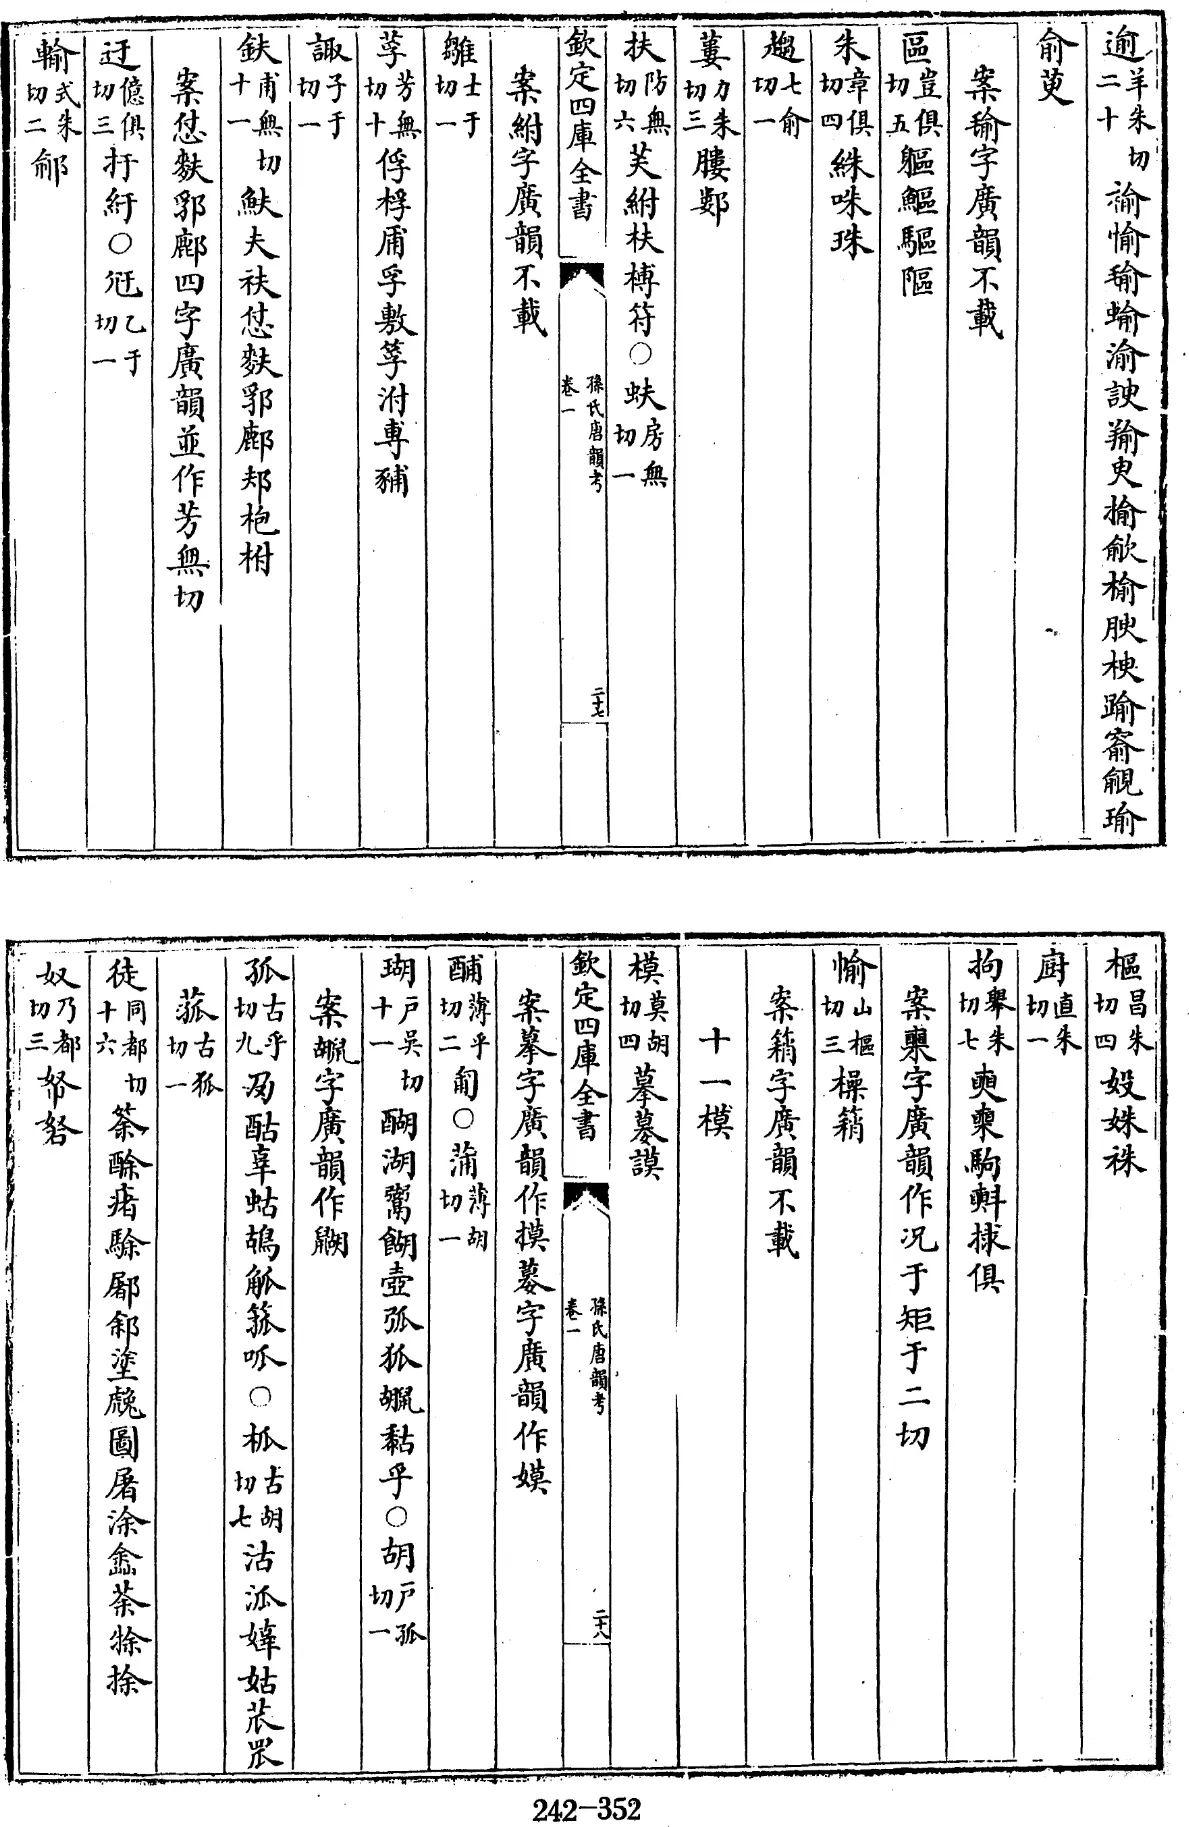 逾羊朱切二十諭愉羭蝓渝諛羭㬰揄歈榆腴楰踰窬覦瑜
俞萸
案瑜字廣韻不載
區豈俱切五軀鰸驅陬
朱章俱切四絑咮珠
趨七俞切一
蔞力朱切三膢鄋
扶防無切六芙紨枎榑符○蚨房無切一
欽定四庫全書
孫氏唐韻考
卷一
二十七
案紨字廣韻不載
雛士于切一
諏子于切一
莩芳無切十俘桴郛孚敷筟泭尃豧
鈇甫無切十一鮇夫袚怤麩郛鄜邞枹柎
案怤麩郛鄜四字廣韻並作芳無切
迂億俱切三扜紆○尪乙于切一
輸式朱切二鄃
樞昌朱切四姝姝袾
廚直朱切一
拘舉朱切七㪺㮚駒䡱捄俱
案㮚字廣韻作况于矩于二切
愉山樞切三橾䈰
案䈰字廣韻不載
十一模
模莫胡切四摹墓謨
欽定四庫全書
孫氏唐韻考
卷一
二十八
案摹字廣韻作摸墓字廣韻作嫫
酺薄乎切二匍○蒲薄胡切一
瑚戶吴切十一醐湖鶘餬壺弧狐䶉黏乎○胡戶孤切一
案䶉字廣韻作鶘
孤古乎切九夃酤辜蛄鴣觚箛呱○柧古胡切七沽泒嫴姑苽罛
菰古狐切一
徒同都切十六荼酴瘏駼鄌鄃塗䖘圖屠涂嵞荼㻌捈
奴乃都切三帑砮